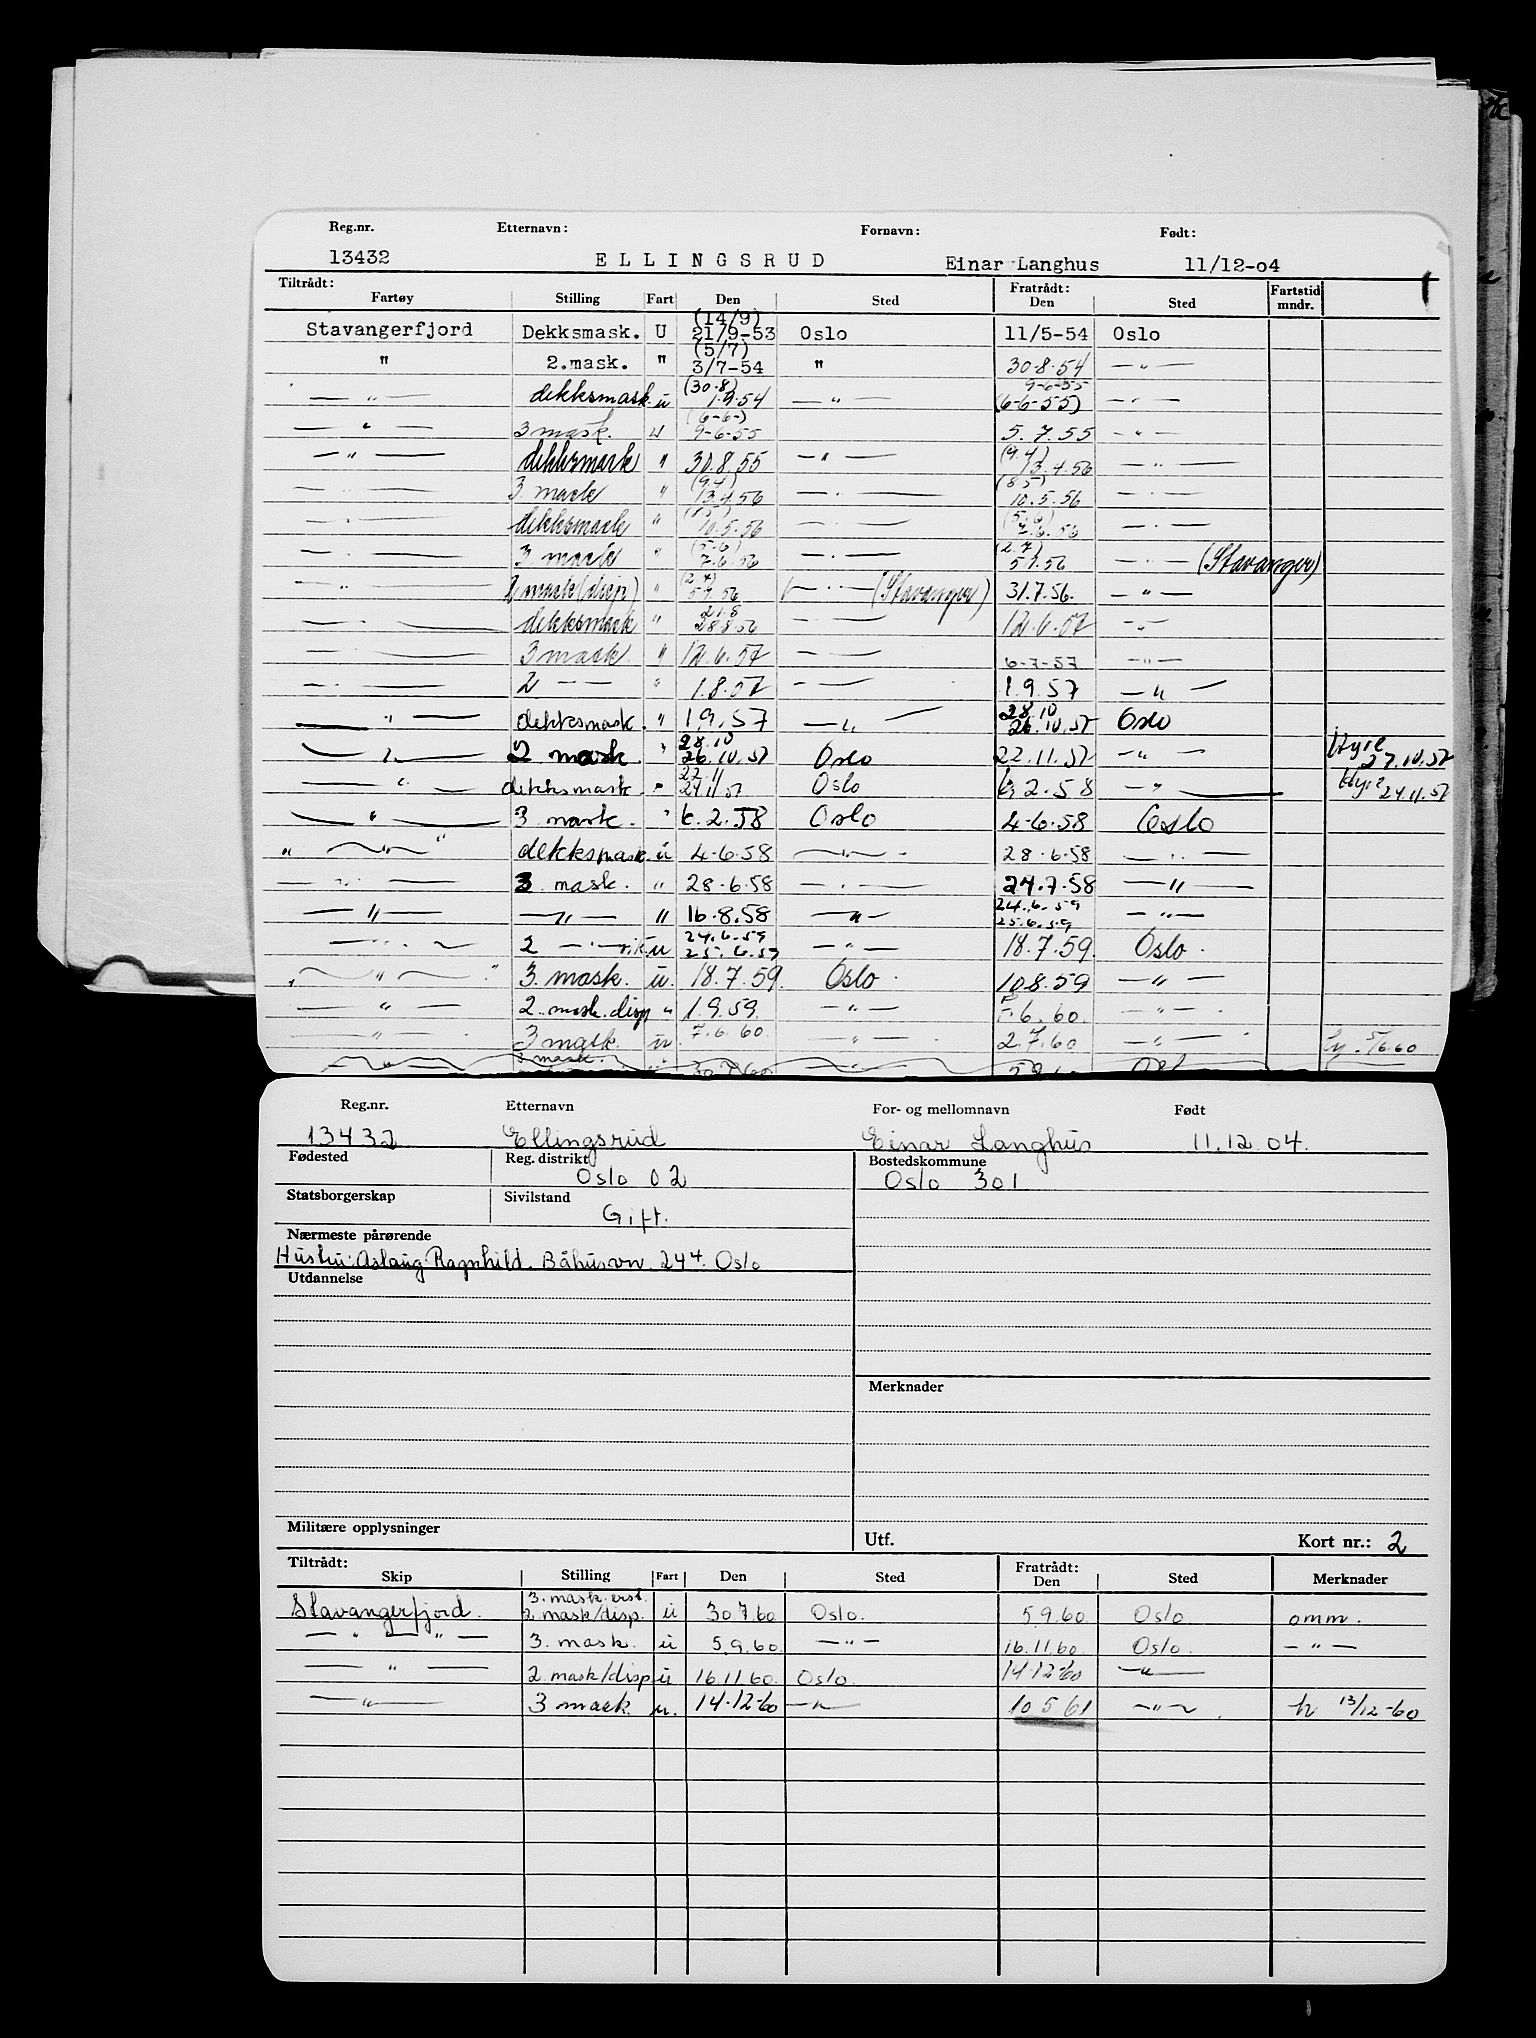 Reg.nr. Etternavn: Fornavn: Født:
13432 ELLINGSRUD Einar Langhus 11/12-04
Tiltrådt: Fratrådt: Fartstid
Fartøy Stilling Fart Den Sted Den Sted mndr.
(14/9)
Stavangerfjord Dekksmask. U 21/9-53 Oslo 11/5-54 Oslo
(5/7)
" 2.mask. " 3/7-54 " 30-8-54 — " —
(30-8) 9-6-55
— " — dekksmask. u 1.9.54 — " — (6-6-55) — " —
(6-6-)
— " — 3 mask. u 9-6-55 5.7.55 — " —
(9.4)
— " — dekksmask " 30.8.55 — " — 13.4.56 — " —
(9.4) (8.5)
— " — 3. mask " 13.4.56 — " — 10.5.56 — " —
(5.6)
— " — dekksmask " 10.5.56 — " — 7.6.56 — " —
(5-6) (2.7)
— " — 3 mask " 7.6.56 — " — 5.7.56 — " — (Stavanger)
(2.7)
— " — 2 mask (disp) " 5.7.56 — " — (Stavanger) 31.7.56. — " —
21.8
— " — dekksmask " 28.8.56 — " — 12.6.57 — " —
— " — 3 mask " 12.6.57 — " — 6-7-57 — " —
— " — 2 — " — " 1.8.57 — " — 1.9.57 — " —
28.10
— " — dekksmask. " 1.9.57 — " — 26.10.57 Oslo
28.10 Hyre
— " — 2 mask. " 26.10.57 Oslo 22.11.57 — " — 27.10.57
22.11 Hyre
— " — dekksmask. " 24.11.57 Oslo 6.2.58 — " — 24.11.57
— " — 3 mask. " 6.2.58 Oslo 4-6-58 Oslo
— " — dekksmask. u 4-6-58 — " — 28-6-58 — " —
— " — 3 mask. " 28-6-58 — " — 24.7.58 — " —
24.6.59
— " — — " — " 16.8.58 — " — 25.6.59 — " —
24.6.59
— " — 2 — " — u 25.6.59 — " — 18.7.59. Oslo.
— " — 3. mask. u. 18.7.59. Oslo. 10.8.59 — " —
— " — 2. mask. disp " 1.9.59. — " — 6.60. — " —
— " — 3 mask. u. 7.6.60. — " — 2.7.60 — " — 5/6.60
3 mask. 30.7.60
Reg.nr. Etternavn For- og mellomnavn Født
13432 Ellingsrud Einar Langhus 11.12.04.
Fødested Reg. distrikt Bostedskommune
Oslo 02 Oslo 301
Statsborgerskap Sivilstand
Gift.
Nærmeste pårørende
Hustru: Aslaug Ragnhild. Båhusvn. 24⁴. Oslo
Utdannelse
Merknader
Militære opplysninger Utf. Kort nr.: 2
Tiltrådt: Fratrådt:
Skip Stilling Fart Den Sted Den Sted Merknader
3. mask. erst.
Stavangerfjord. 2. mask/disp. u 30.7.60 Oslo. 5.9.60. Oslo omm.
— " — " — 3. mask. u 5.9.60. — " — 16.11.60. Oslo. — " —
— " — 2. mask/disp u 16.11.60. Oslo. 14-12-60 — " —
— " — 3 mask. u. 14-12-60 — " — 10.5.61 — " — h 13/12-60